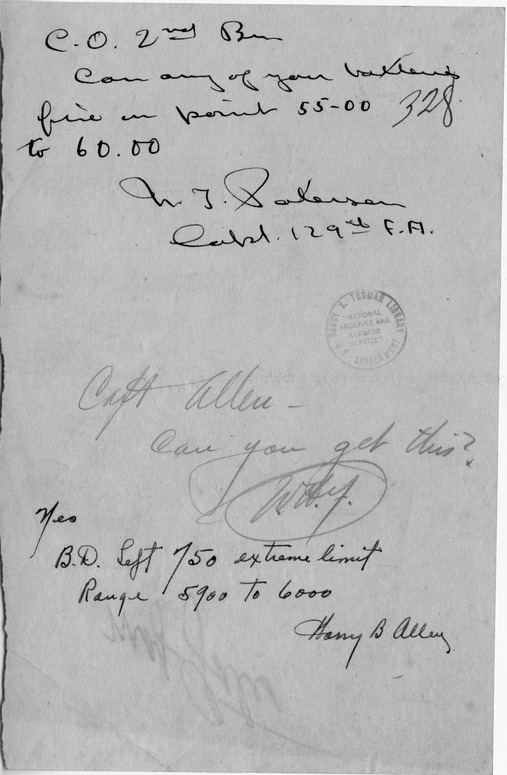 C.O. 2nd Bn
Can any of your batteries
fire on point 55-00 328
to 60.00
N. T. Paterson
Capt. 129th F.A.
HARRY S. TRUMAN LIBRARY
"NATIONAL
ARCHIVES AND
RECORDS
SERVICE"
U.S. GOVERNMENT
Capt Allen -
Can you get this?
Yes
B.D. Left 750 extreme limit
Range 5900 to 6000
Harry B Allen